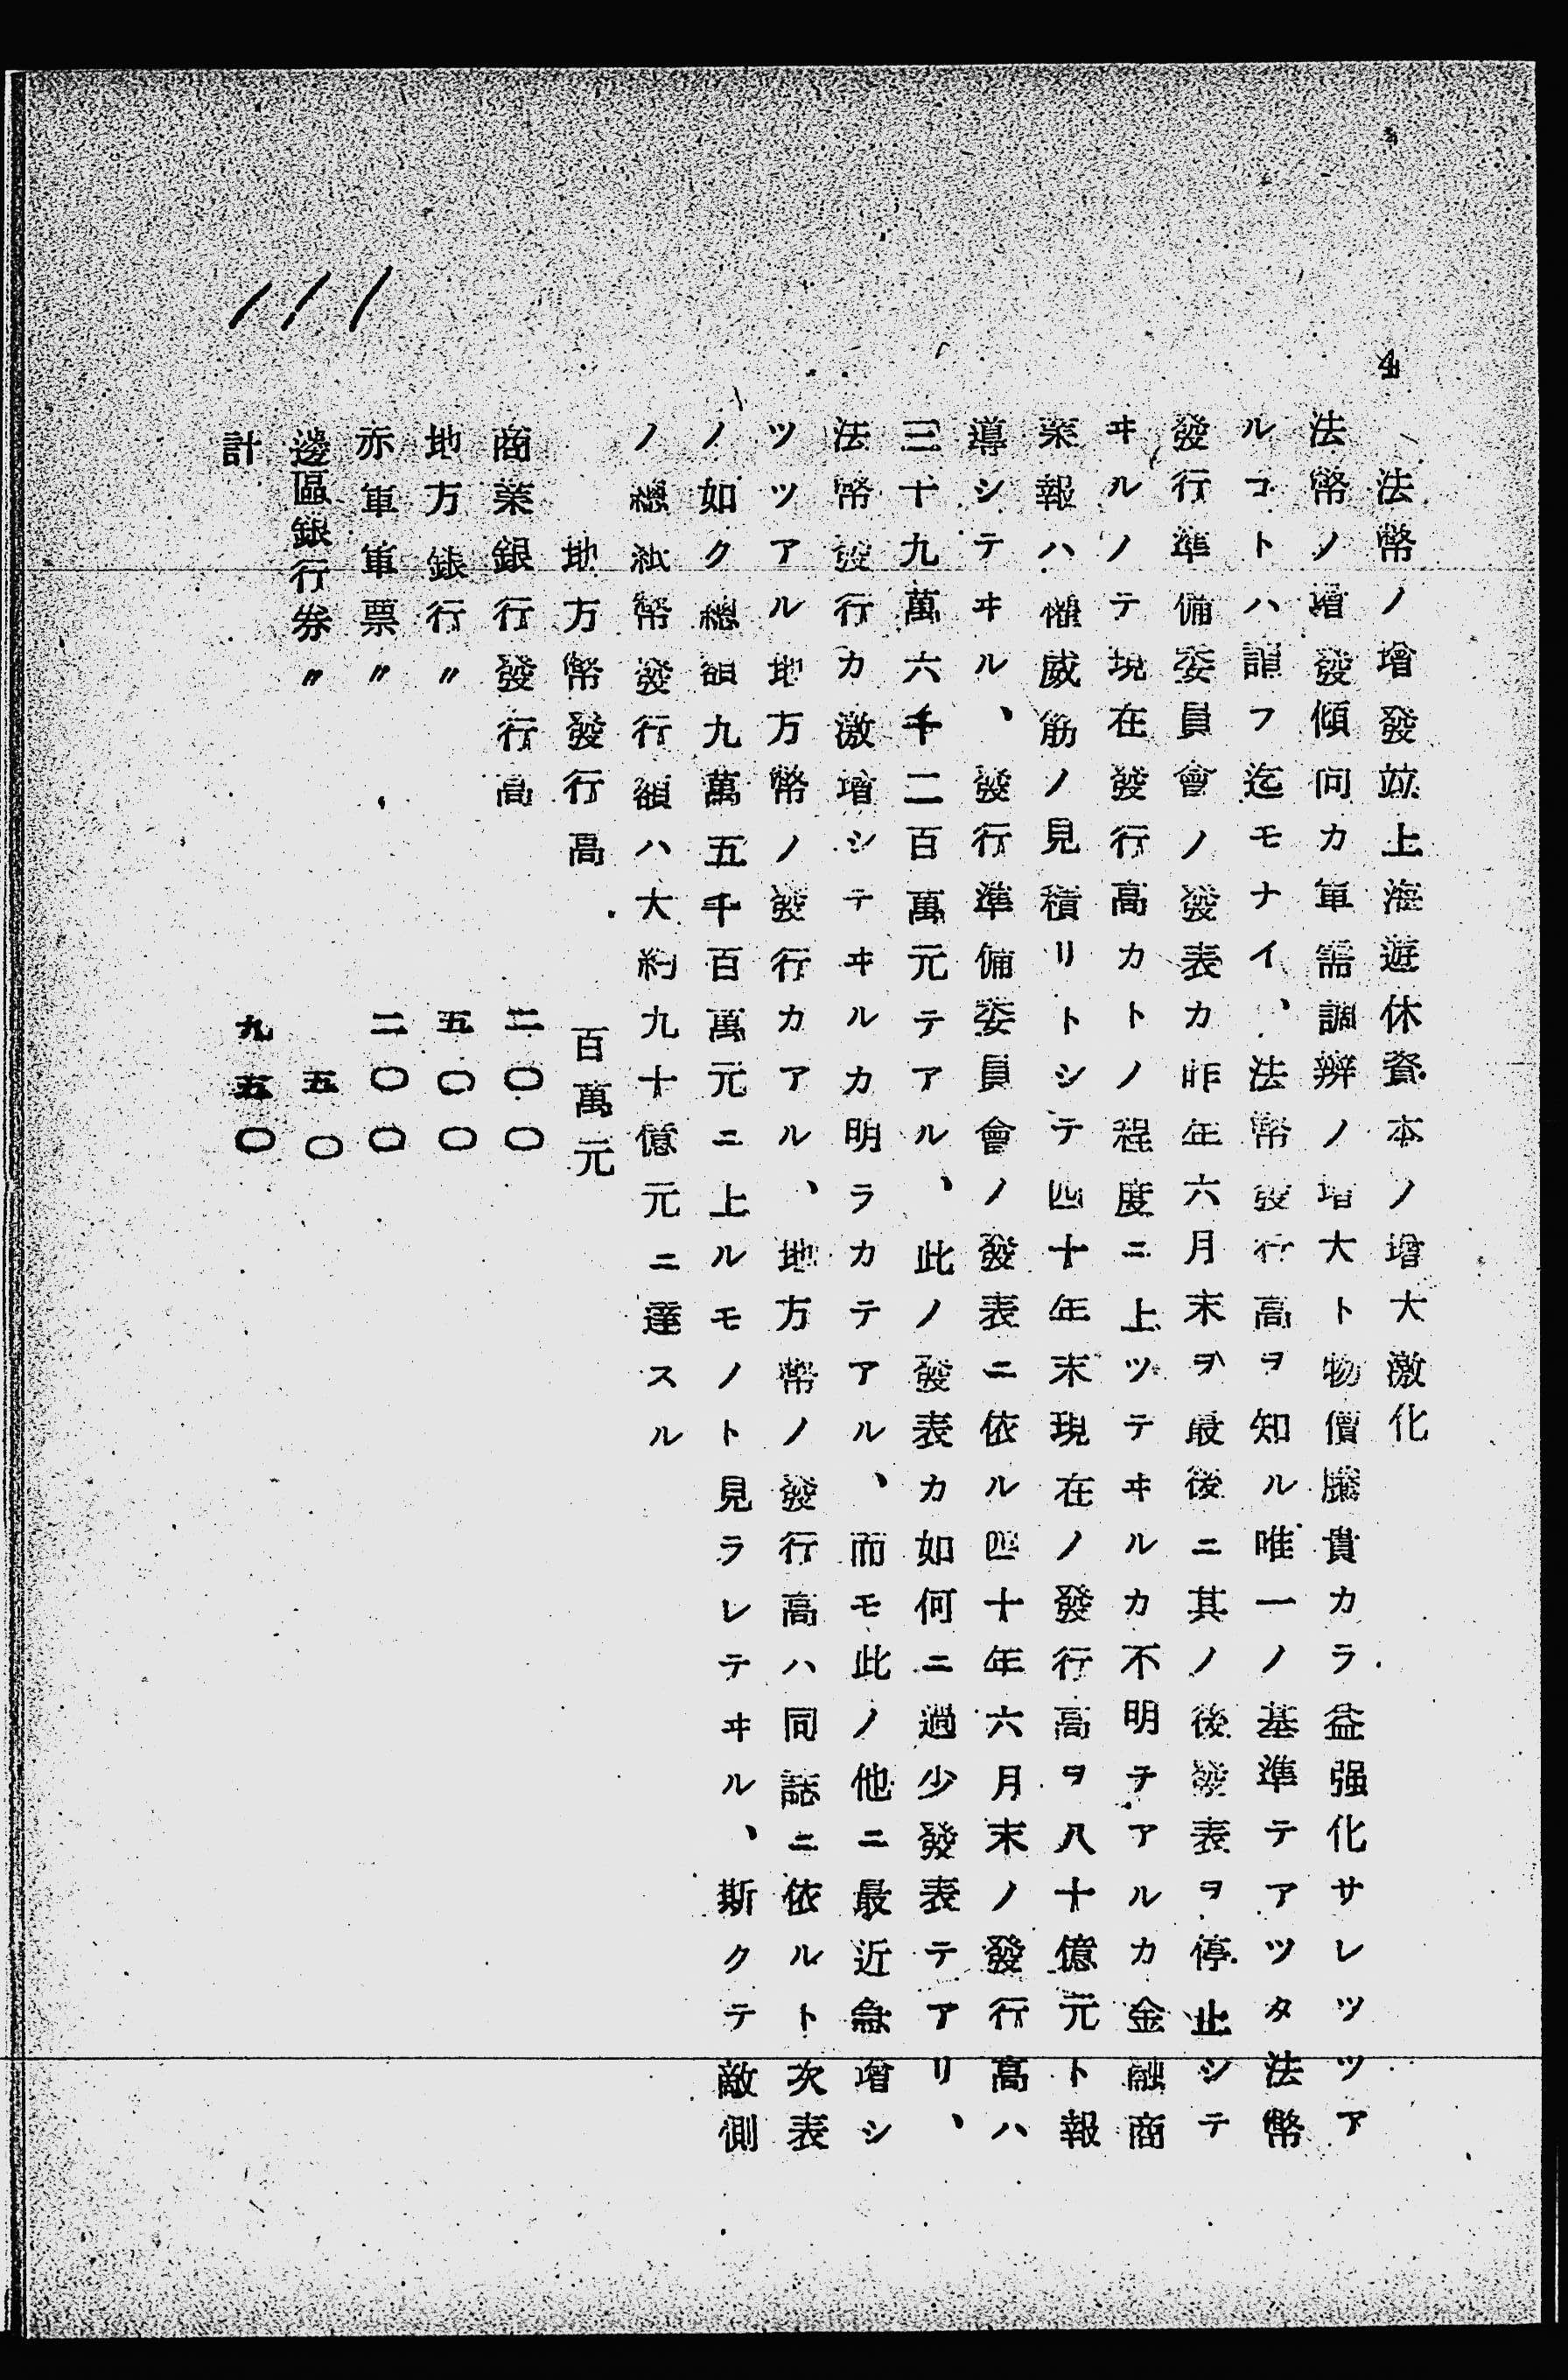 4
法幣ノ增發竝上海遊休資本ノ增大激化
法幣ノ增發傾向カ軍需調辨ノ增大ト物價騰貴カラ益强化サレツツア
ルコトハ謂フ迄モナイ、法幣發行高ヲ知ル唯一ノ基準テアツタ法幣
發行準備委員會ノ發表カ昨年六月末ヲ最後ニ其ノ後發表ヲ停止シテ
ヰルノテ現在發行高カトノ程度ニ上ツテヰルカ不明テアルカ金融商
業報ハ權威筋ノ見積リトシテ四十年末現在ノ發行高ヲ八十億元ト報
導シテヰル、發行準備委員會ノ發表ニ依ル四十年六月末ノ發行高ハ
三十九萬六千二百萬元テアル、此ノ發表カ如何ニ過少發表テアリ、
法幣發行カ激增シテヰルカ明ラカテアル、而モ此ノ他ニ最近急增シ
ツツアル地方幣ノ發行カアル、地方幣ノ發行高ハ同誌ニ依ルト次表
ノ如ク總額九萬五千百萬元ニ上ルモノト見ラレテヰル、斯クテ敵側
ノ總紙幣發行額ハ大約九十億元ニ達スル
地方幣發行高 百萬元
商業銀行發行高 二〇〇
地方銀行〃 五〇〇
赤軍軍票〃 二〇〇
邊區銀行券〃 五〇
計 九五〇
111